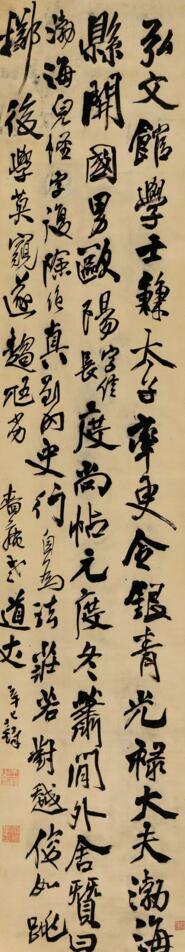 弘文館學士兼太子率更令銀青光祿大夫渤海
縣開國男歐陽字信長度尚帖元度冬蕭閒外舍贊曰
渤海兒怪字復險絕真到內史行自為法莊若對越俊如跳
擲後學莫窺遂趨尪劣道丈辛巳王鐸